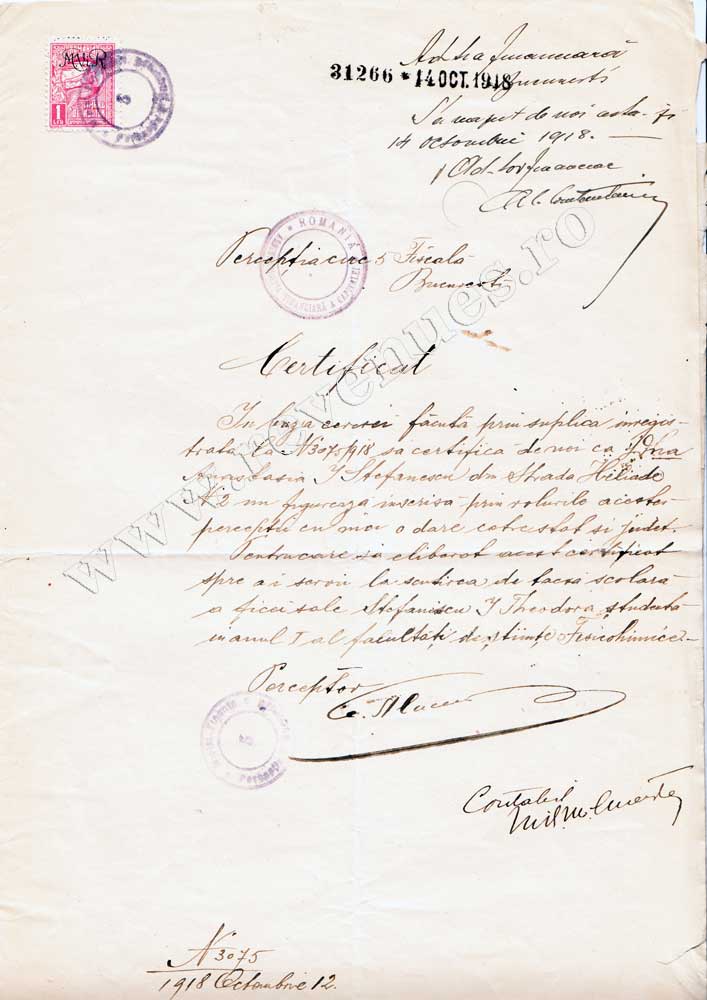 MViR
1
LEU
31266 * 14 OCT. 1918
Ad-ţia Financiară
Bucuresti
S'a vazut de noi asta-zi
14 Octombrie 1918.—
Ad-tor Financiar
Al. Constantin
ROMANIA
FINANCIARĂ A CAPITALEI
Percepţia circ 5 Fiscală
Bucuresti
Certificat
In baza cererei făcută prin suplica inregis-
trata la N 3075/918 sa certifică de noi ca D-na
Anastasia I Stefanescu din Strada Heliade
N 2 nu figureaza inscrisa prin rolurile acestei
perceptii cu nici o dare catre stat si judet.
Pentru care s'a eliberat acest certificat
spre a-i servi la scutirea de taxa scolara
a ficei sale Stefanescu I Theodora studenta
in anul I al facultăţi de ştiinţe Fisicochimice—
Perceptor
5
Contabil
N 3075
1918 Octombrie 12.
www.revenues.ro